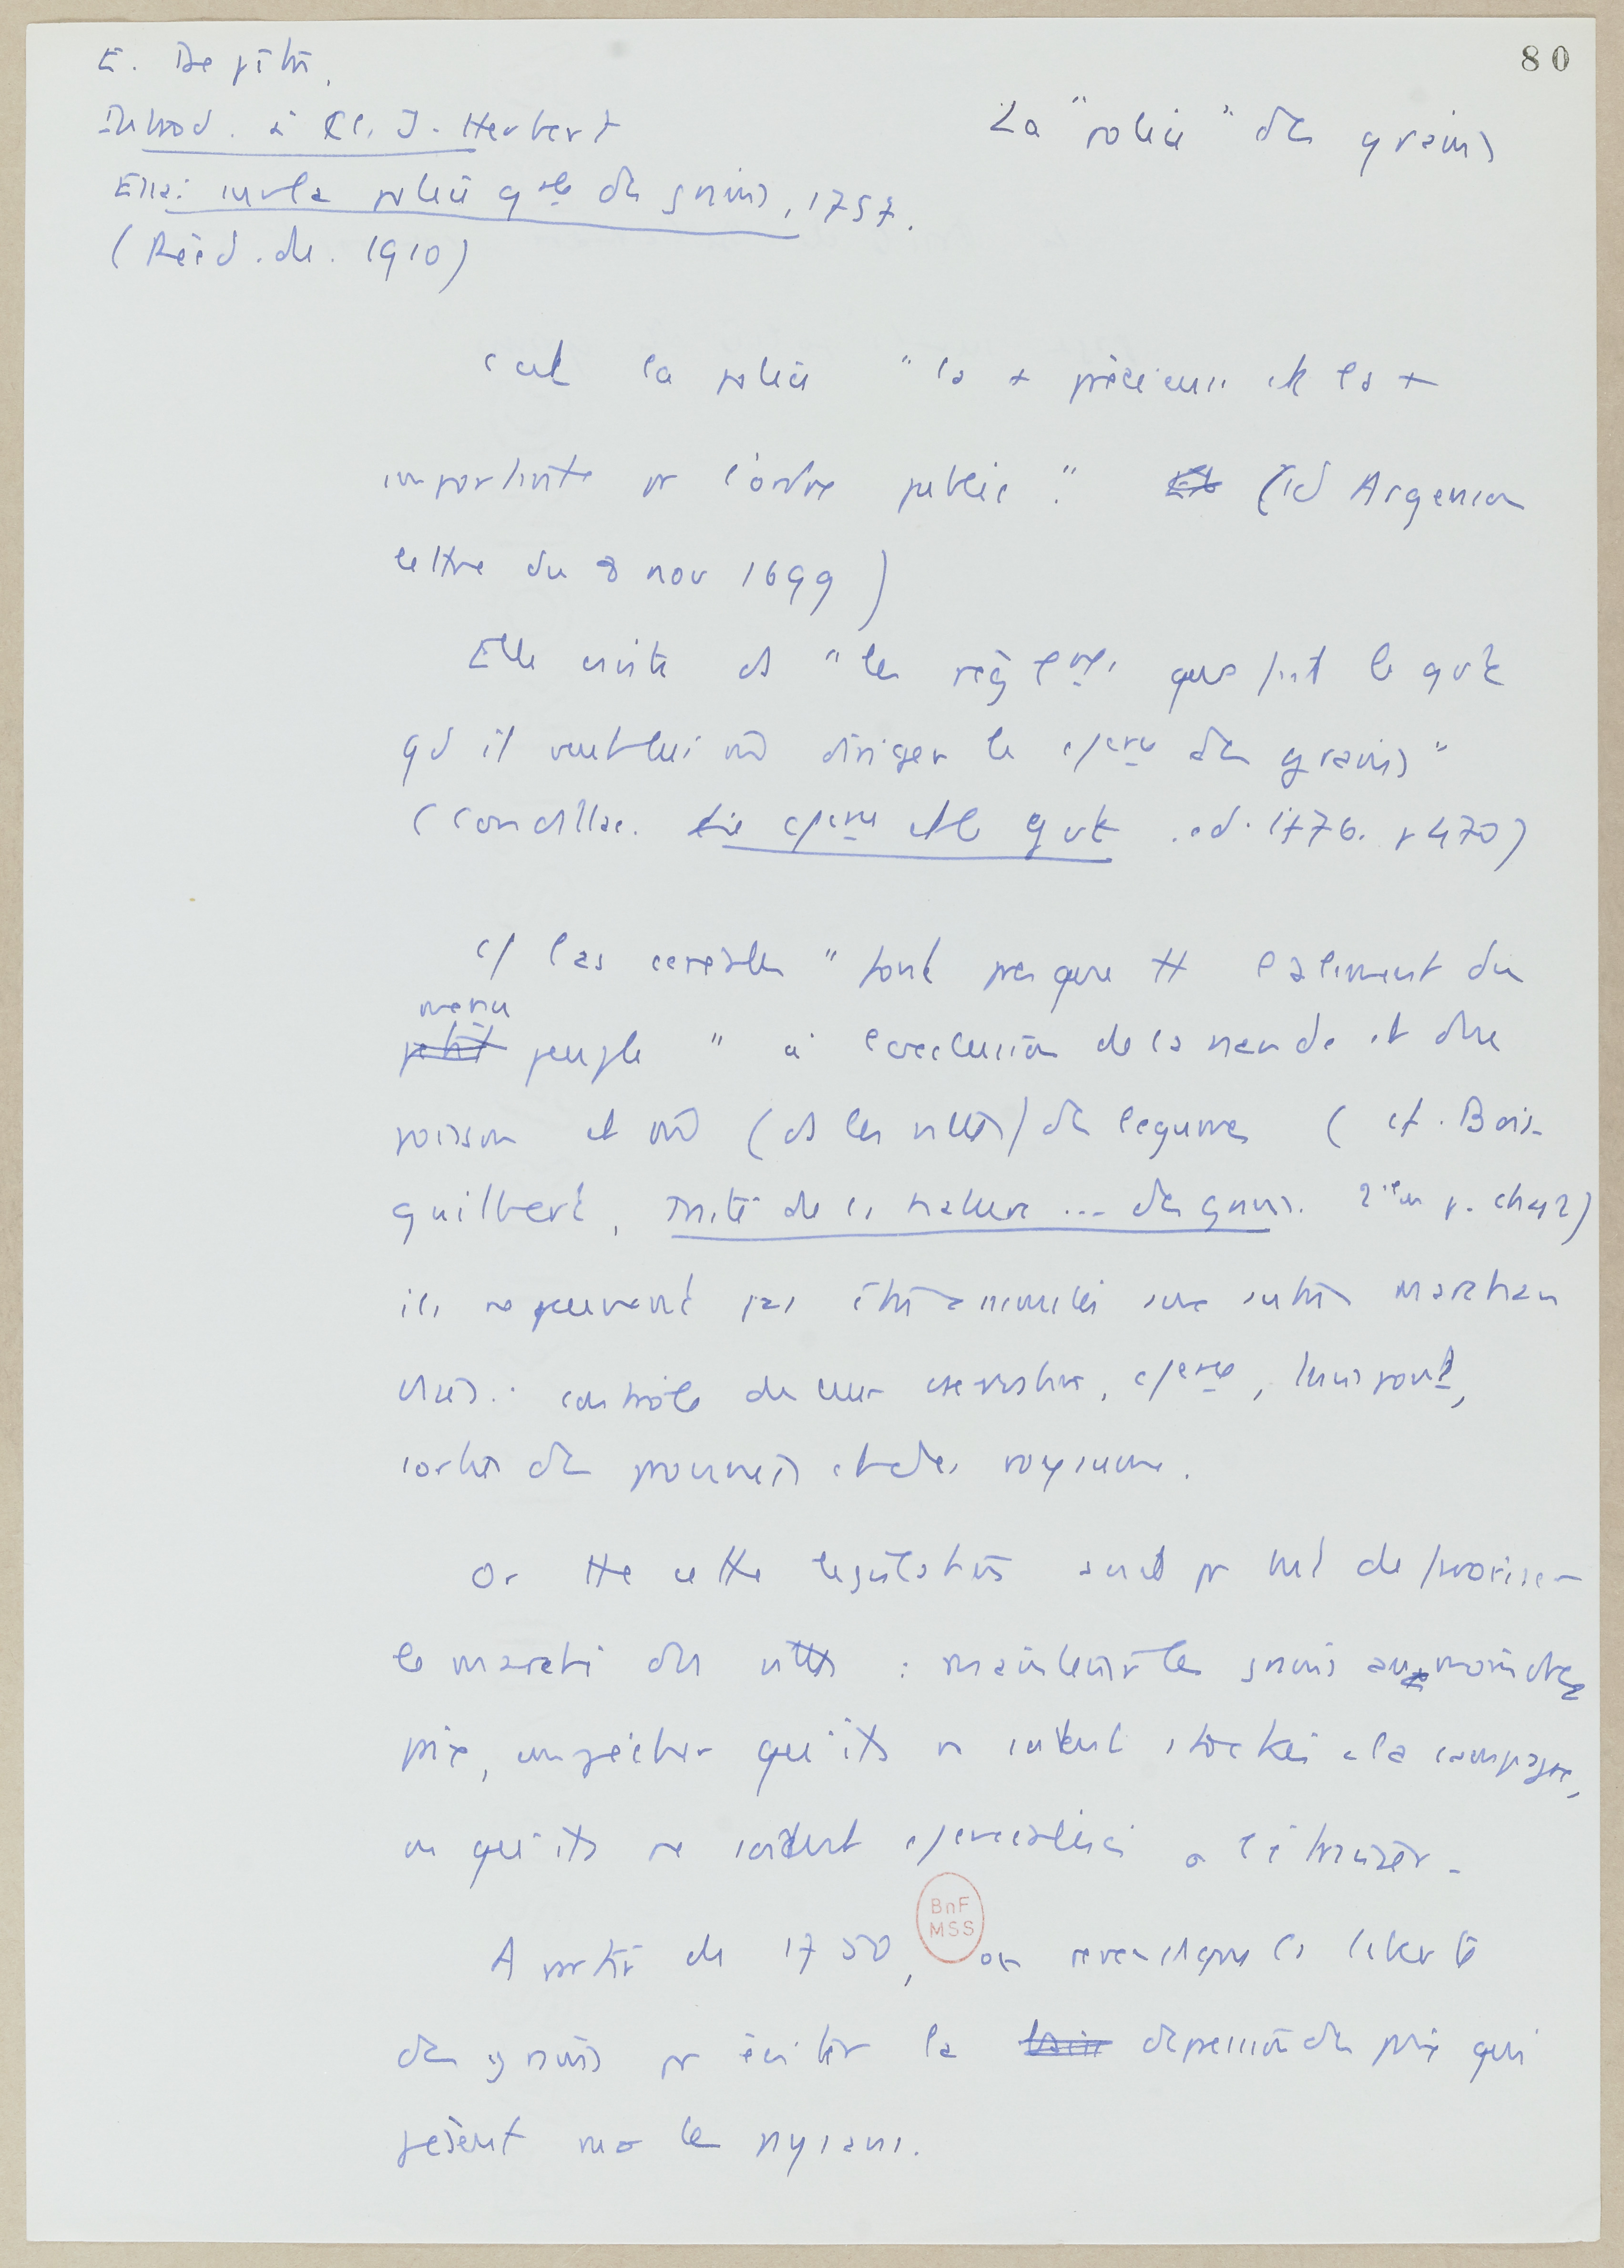 80
E. Depitre.
Introd. à Cl. J. Herbert
Essai sur la police gale des grains, 1757.
(Rééd. de 1910)
La "police" des grains
c'est la police "la + précieuse et la +
importante pr l'ordre public." (cf d'Argenson
lettre du 8 nov 1699)
Elle consiste ds "les règlemts que fait le gvt
qd il veut lui-m̂ diriger le cerce des grains"
(Condillac. Le cerce et le gvt. ed. 1776. p 470)
Les céréales "font presque tt l'aliment du
menu
petit peuple" à l'exclusion de la viande et du
poisson et m̂ (ds les villes) des légumes (cf. Bois-
guilbert, Traité de la nature ... des grains. 2ième p. ch 2)
ils ne peuvent pas être assimilés aux autres marchan
dises : contrôle de leur conservation, cerce, transport,
sortie des provinces et des royaume.
Or tte cette législation avait pr but de favoriser
le marché des villes : maintenir les grains au moindre
prix, empêcher qu'ils ne soient stockés à la campagne,
ou qu'ils ne soient cercialisés à l'étranger.
BnF
MSS
A partir de 1750, on revendique la liberté
des grains pr éviter la dépression des prix qui
pèsent sur les paysans.